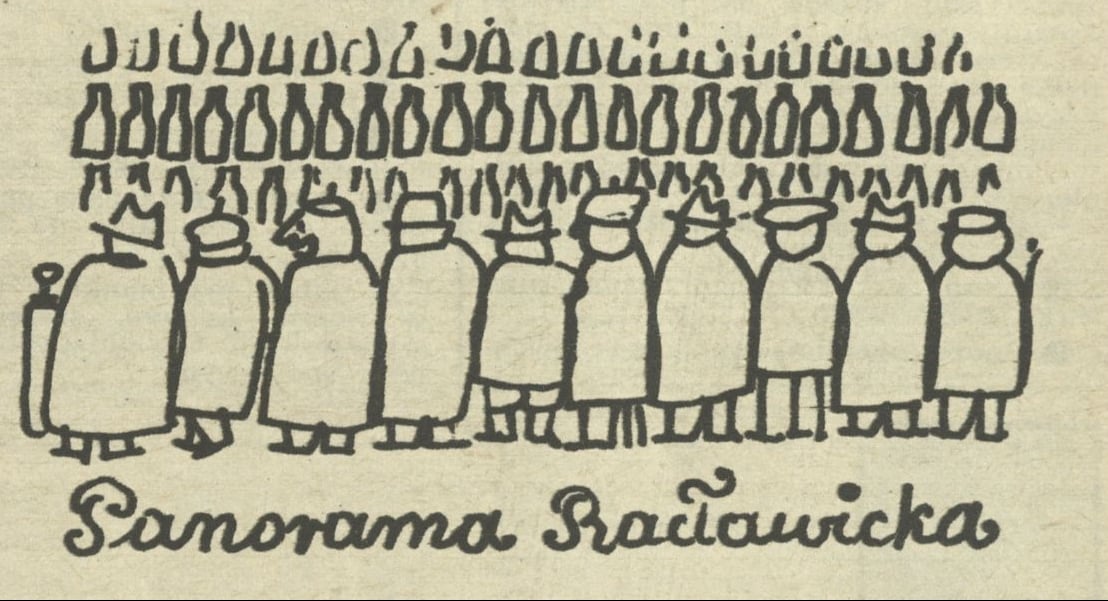 Panorama Racławicka